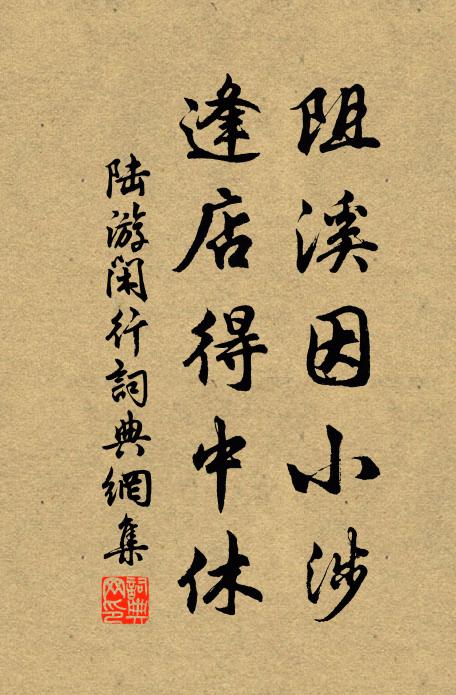 阻溪因小涉
逢店得中休
陆游闲行詞典網集
詞典网印